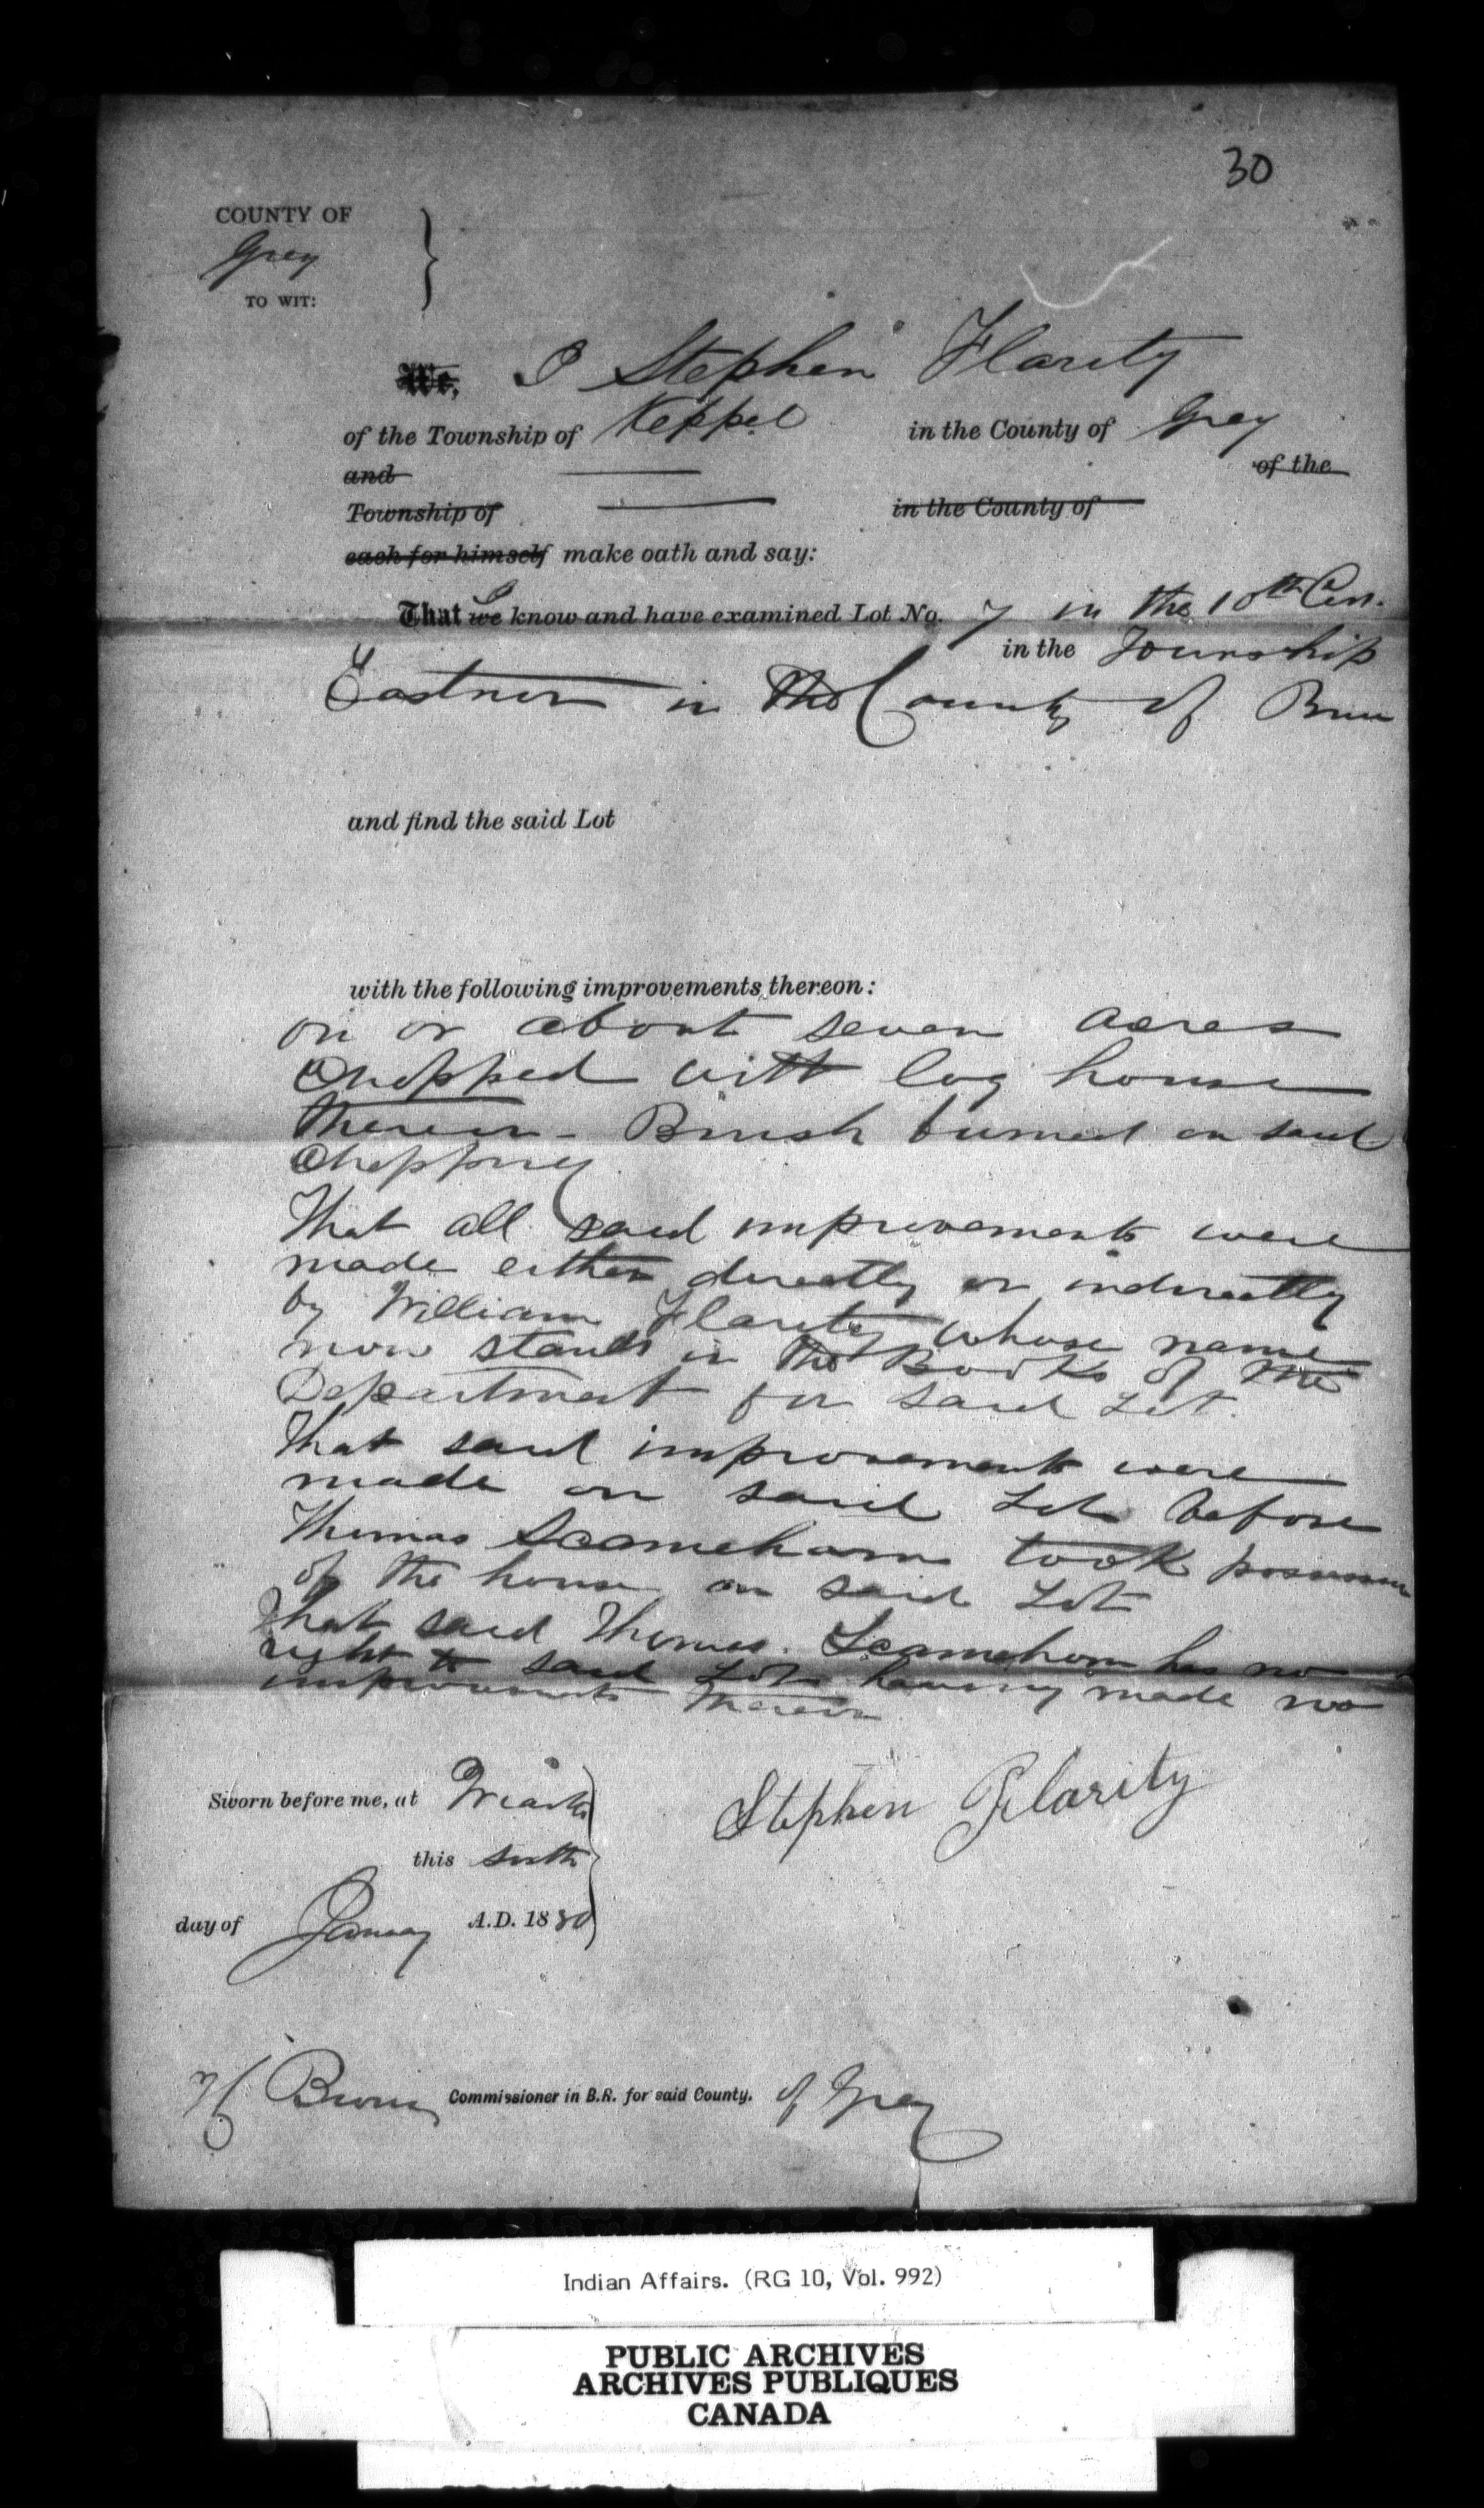 30
COUNTY OF
Grey
TO WIT:
We, I Stephen Flarity
of the Township of Keppel in the County of Grey
and of the
Township of in the County of
each for himself make oath and say:
That we I know and have examined Lot No. 7 in the 10th Con.
in the Township
Eastnor in the County of Bruce
and find the said Lot
with the following improvements thereon:
on or about seven acres
Chopped with log house
thereon - Brush burned on said
Chopping
That all said improvements were
made either directly or indirectly
by William Flarity whose name
now stands in the Books of the
Department for said Lot.
That said improvements were
made on said Lot before
Thomas Scamehorn took possession
of the house on said Lot
That said Thomas Scamehorn has no
right to said Lot having made no
improvements thereon
Sworn before me, at Wiarton
this sixth
day of January A.D. 1880
Stephen Flarity
Commissioner in B.R. for said County. of Grey
Indian Affairs. (RG 10, Vol. 992)
PUBLIC ARCHIVES
ARCHIVES PUBLIQUES
CANADA